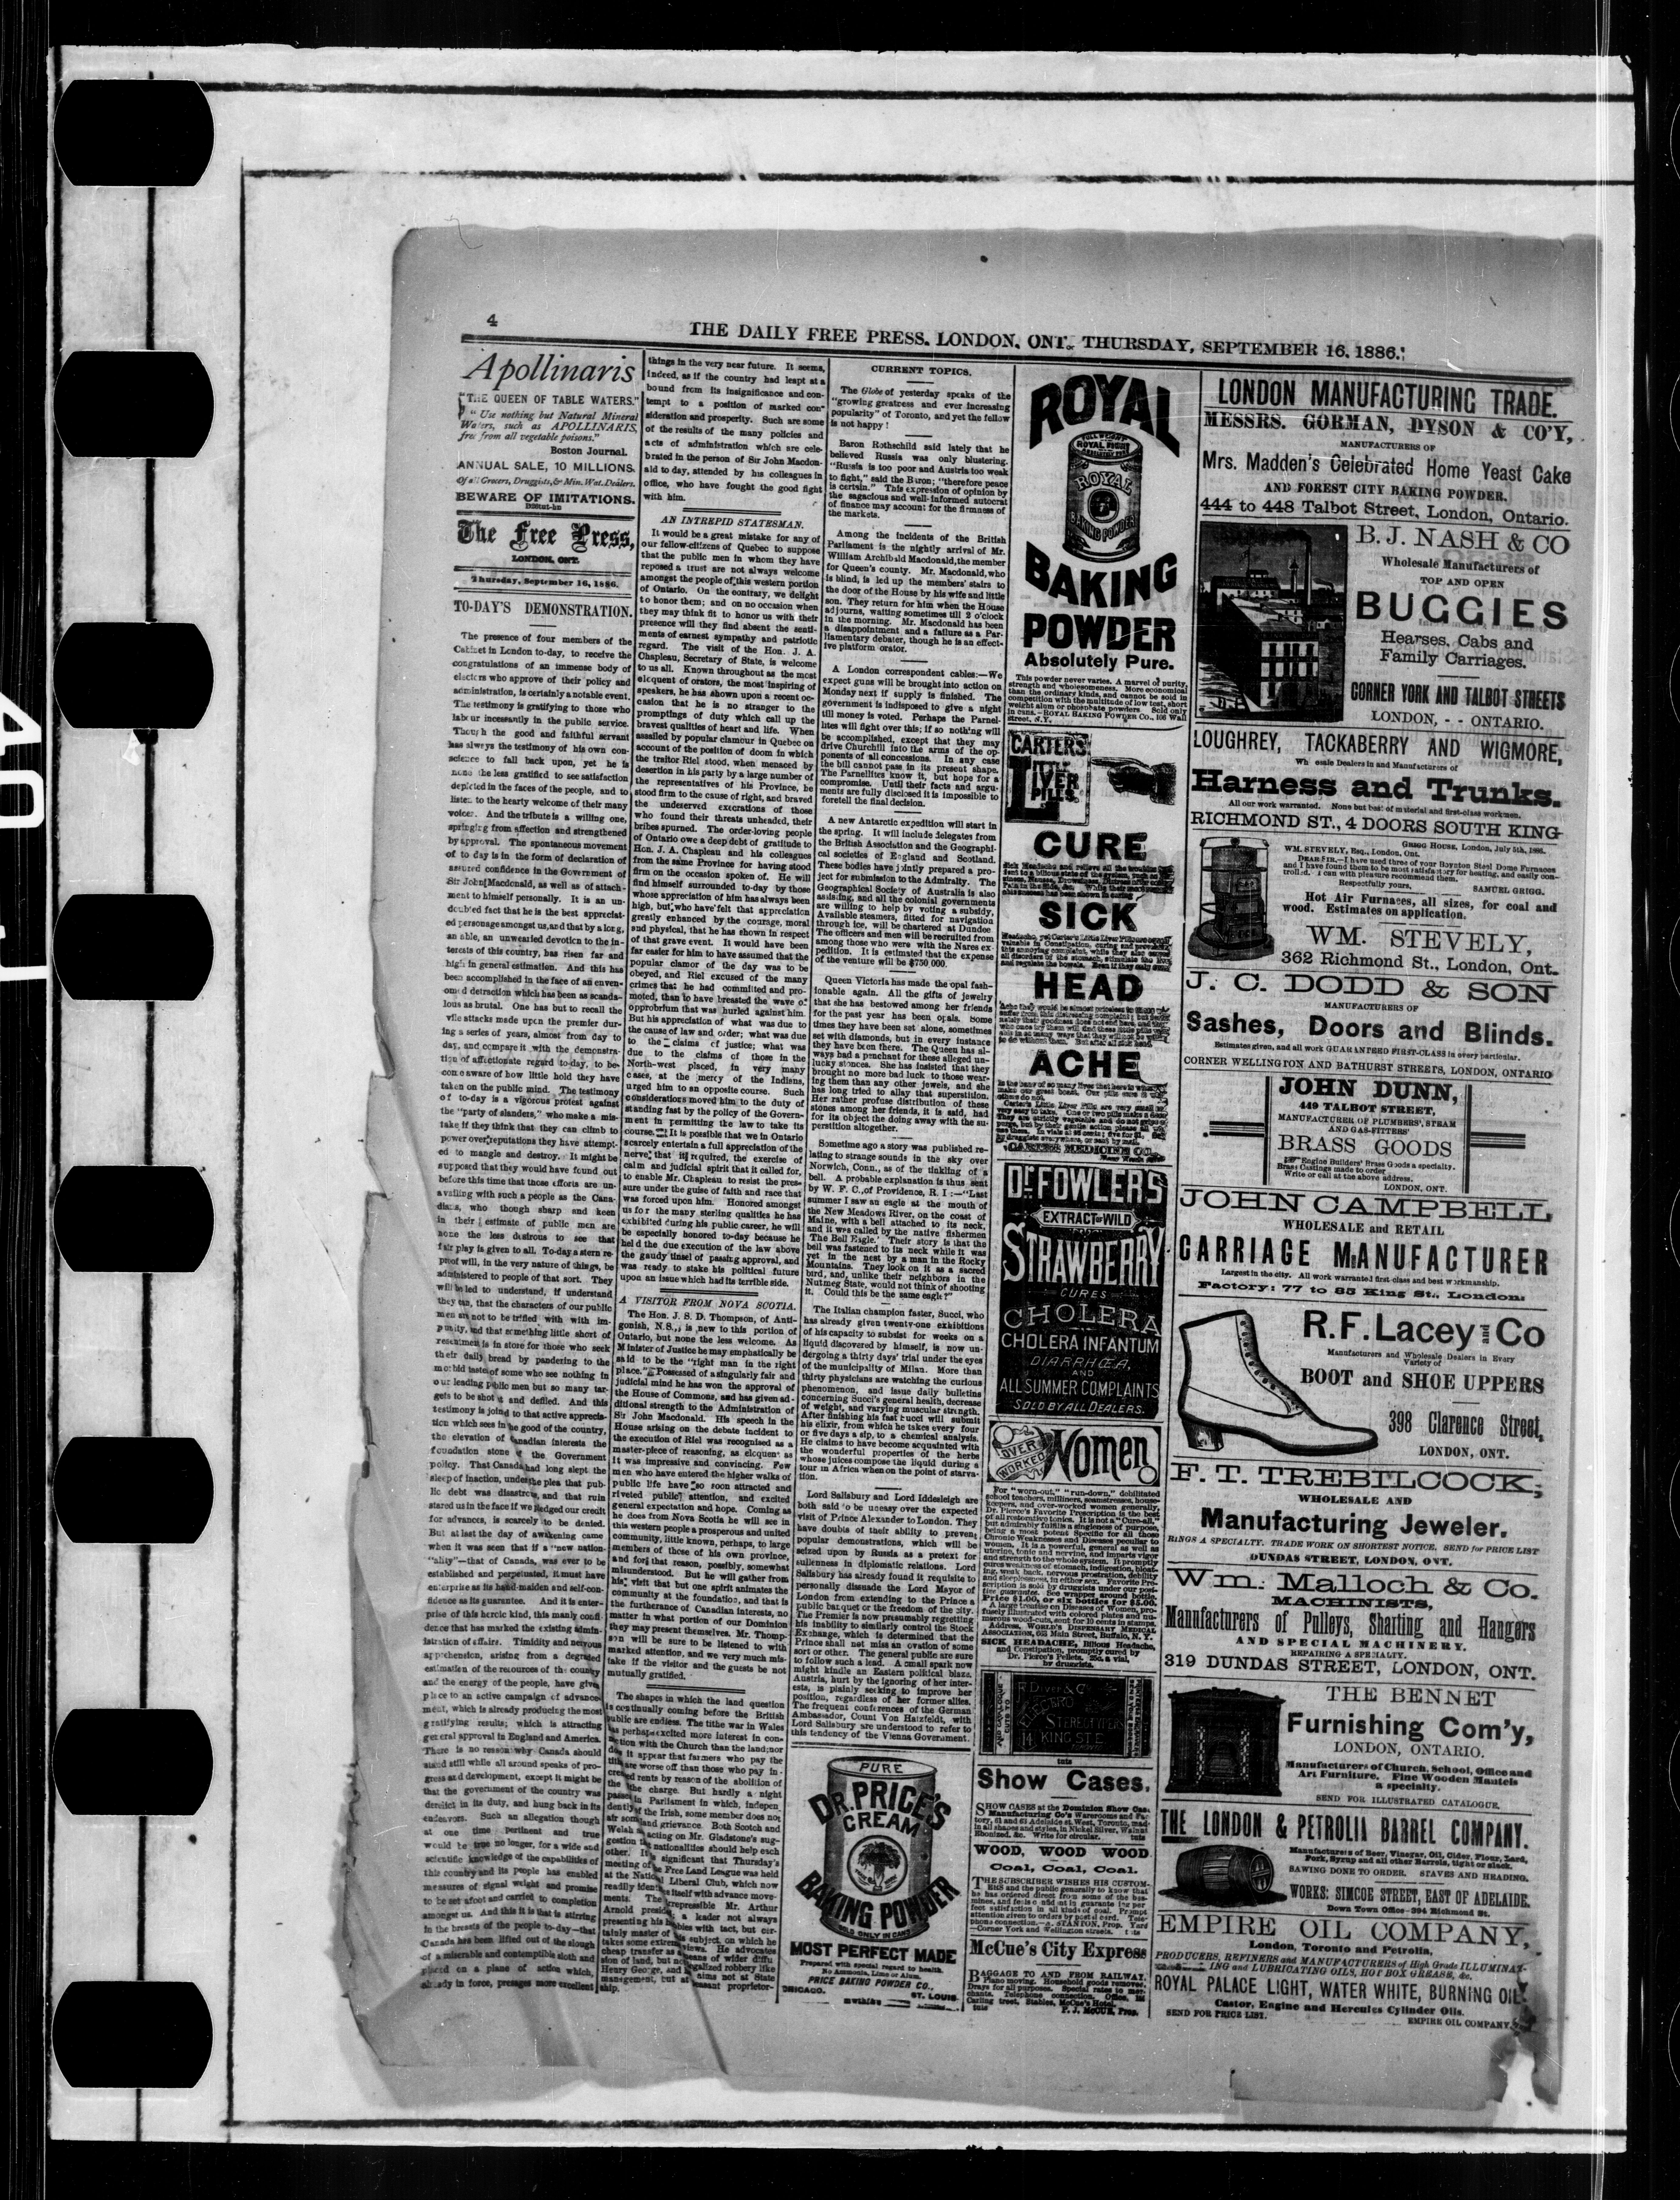 4
THE DAILY FREE PRESS. LONDON, ONT. THURSDAY, SEPTEMBER 16, 1886.
Apollinaris
"THE QUEEN OF TABLE WATERS."
"Use nothing but Natural Mineral
Waters, such as APOLLINARIS,
free from all vegetable poisons."
Boston Journal.
ANNUAL SALE, 10 MILLIONS.
Of all Grocers, Druggists, & Min. Wat. Dealers.
BEWARE OF IMITATIONS.
The Free Press,
LONDON, ONT.
Thursday, September 16, 1886.
TO-DAY'S DEMONSTRATION.
The presence of four members of the
Cabinet in London to-day, to receive the
congratulations of an immense body of
electors who approve of their policy and
administration, is certainly a notable event.
The testimony is gratifying to those who
labour incessantly in the public service.
Though the good and faithful servant
has always the testimony of his own con-
science to fall back upon, yet he is
none the less gratified to see satisfaction
depicted in the faces of the people, and to
listen to the hearty welcome of their many
voices. And the tribute is a willing one,
springing from affection and strengthened
by approval. The spontaneous movement
of to day is in the form of declaration of
assured confidence in the Government of
Sir John Macdonald, as well as of attach-
ment to himself personally. It is an un-
doubted fact that he is the best appreciat-
ed personage amongst us, and that by a long,
an able, an unwearied devotion to the in-
terests of this country, has risen far and
high in general estimation. And this has
been accomplished in the face of an enven-
omed detraction which has been as scanda-
lous as brutal. One has but to recall the
vile attacks made upon the premier dur-
ing a series of years, almost from day to
day, and compare it with the demonstra-
tion of affectionate regard to-day, to be-
come aware of how little hold they have
taken on the public mind. The testimony
of to-day is a vigorous protest against
the "party of slanders," who make a mis-
take if they think that they can climb to
power over reputations they have attempt-
ed to mangle and destroy. It might be
supposed that they would have found out
before this time that those efforts are un-
availing with such a people as the Cana-
dians, who though sharp and keen
in their estimate of public men are
none the less desirous to see that
fair play is given to all. To-day a stern re-
proof will, in the very nature of things, be
administered to people of that sort. They
will be led to understand, if understand
they can, that the characters of our public
men are not to be trifled with with im-
punity, and that something little short of
resentment is in store for those who seek
their daily bread by pandering to the
morbid taste of some who see nothing in
our leading public men but so many tar-
gets to be shot at and defiled. And this
testimony is joined to that active apprecia-
tion which sees in the good of the country,
the elevation of Canadian interests the
foundation stone of the Government
policy. That Canada had long slept the
sleep of inaction, under the plea that pub-
lic debt was disastrous, and that ruin
stared us in the face if we pledged our credit
for advances, is scarcely to be denied.
But at last the day of awakening came
when it was seen that if a "new nation-
"ality"—that of Canada, was ever to be
established and perpetuated, it must have
enterprise as its hand-maiden and self-con-
fidence as its guarantee. And it is enter-
prise of this heroic kind, this manly confi-
dence that has marked the existing admin-
istration of affairs. Timidity and nervous
apprehension, arising from a degraded
estimation of the resources of the country
and the energy of the people, have given
place to an active campaign of advance-
ment, which is already producing the most
gratifying results; which is attracting
general approval in England and America.
There is no reason why Canada should
stand still while all around speaks of pro-
gress and development, except it might be
that the government of the country was
derelict in its duty, and hung back in its
endeavors. Such an allegation though
at one time pertinent and true
would be true no longer, for a wide and
scientific knowledge of the capabilities of
this country and its people has enabled
measures of signal weight and promise
to be set afoot and carried to completion
amongst us. And this it is that is stirring
in the breasts of the people to-day—that
Canada has been lifted out of the slough
of a miserable and contemptible sloth and
placed on a plane of action which,
already in force, presages more excellent
things in the very near future. It seems,
indeed, as if the country had leapt at a
bound from its insignificance and con-
tempt to a position of marked con-
sideration and prosperity. Such are some
of the results of the many policies and
acts of administration which are cele-
brated in the person of Sir John Macdon-
ald to day, attended by his colleagues in
office, who have fought the good fight
with him.
AN INTREPID STATESMAN.
It would be a great mistake for any of
our fellow-citizens of Quebec to suppose
that the public men in whom they have
reposed a trust are not always welcome
amongst the people of this western portion
of Ontario. On the contrary, we delight
to honor them; and on no occasion when
they may think fit to honor us with their
presence will they find absent the senti-
ments of earnest sympathy and patriotic
regard. The visit of the Hon. J. A.
Chapleau, Secretary of State, is welcome
to us all. Known throughout as the most
eloquent of orators, the most inspiring of
speakers, he has shown upon a recent oc-
casion that he is no stranger to the
promptings of duty which call up the
bravest qualities of heart and life. When
assailed by popular clamour in Quebec on
account of the position of doom in which
the traitor Riel stood, when menaced by
desertion in his party by a large number of
the representatives of his Province, he
stood firm to the cause of right, and braved
the undeserved execrations of those
who found their threats unheaded, their
bribes spurned. The order-loving people
of Ontario owe a deep debt of gratitude to
Hon. J. A. Chapleau and his colleagues
from the same Province for having stood
firm on the occasion spoken of. He will
find himself surrounded to-day by those
whose appreciation of him has always been
high, but who have felt that appreciation
greatly enhanced by the courage, moral
and physical, that he has shown in respect
of that grave event. It would have been
far easier for him to have assumed that the
popular clamor of the day was to be
obeyed, and Riel excused of the many
crimes that he had committed and pro-
moted, than to have breasted the wave of
opprobrium that was hurled against him.
But his appreciation of what was due to
the cause of law and order; what was due
to the claims of justice; what was
due to the claims of those in the
North-west placed, in very many
cases, at the mercy of the Indians,
urged him to an opposite course. Such
considerations moved him to the duty of
standing fast by the policy of the Govern-
ment in permitting the law to take its
course. It is possible that we in Ontario
scarcely entertain a full appreciation of the
nerve that it required, the exercise of
calm and judicial spirit that it called for,
to enable Mr. Chapleau to resist the pres-
sure under the guise of faith and race that
was forced upon him. Honored amongst
us for the many sterling qualities he has
exhibited during his public career, he will
be especially honored to-day because he
held the due execution of the law above
the gaudy tinsel of passing approval, and
was ready to stake his political future
upon an issue which had its terrible side.
A VISITOR FROM NOVA SCOTIA.
The Hon. J. S. D. Thompson, of Anti-
gonish, N.S., is new to this portion of
Ontario, but none the less welcome. As
Minister of Justice he may emphatically be
said to be the "right man in the right
place." Possessed of a singularly fair and
judicial mind he has won the approval of
the House of Commons, and has given ad-
ditional strength to the Administration of
Sir John Macdonald. His speech in the
House arising on the debate incident to
the execution of Riel was recognised as a
master-piece of reasoning, as eloquent as
it was impressive and convincing. Few
men who have entered the higher walks of
public life have so soon attracted and
riveted public attention, and excited
general expectation and hope. Coming as
he does from Nova Scotia he will see in
this western people a prosperous and united
community, little known, perhaps, to large
members of those of his own province,
and for that reason, possibly, somewhat
misunderstood. But he will gather from
his visit that but one spirit animates the
community at the foundation, and that is
the furtherance of Canadian interests, no
matter in what portion of our Dominion
they may present themselves. Mr. Thomp-
son will be sure to be listened to with
marked attention, and we very much mis-
take if the visitor and the guests be not
mutually gratified.
The shapes in which the land question
is continually coming before the British
public are endless. The tithe war in Wales
has perhaps excited more interest in con-
nection with the Church than the land; nor
does it appear that farmers who pay the
tithe are worse off than those who pay in-
creased rents by reason of the abolition of
the charge. But hardly a night
passes in Parliament in which, indepen-
dently of the Irish, some member does not
air some land grievance. Both Scotch and
Welsh acting on Mr. Gladstone's sug-
gestion that nationalities should help each
other. It is significant that Thursday's
meeting of the Free Land League was held
at the National Liberal Club, which now
readily identifies itself with advance move-
ments. The irrepressible Mr. Arthur
Arnold presided; a leader not always
presenting his hobbies with tact, but cer-
tainly master of his subject, on which he
takes some extreme views. He advocates
cheap transfer as a means of wider diffu-
sion of land, but not legalized robbery like
Henry George, and aims not at State
management, but at peasant proprietor-
ship.
CURRENT TOPICS.
The Globe of yesterday speaks of the
"growing greatness and ever increasing
popularity" of Toronto, and yet the fellow
is not happy!
Baron Rothschild said lately that he
believed Russia was only blustering.
"Russia is too poor and Austria too weak
to fight," said the Baron; "therefore peace
is certain." This expression of opinion by
the sagacious and well-informed autocrat
of finance may account for the firmness of
the markets.
Among the incidents of the British
Parliament is the nightly arrival of Mr.
William Archibald Macdonald, the member
for Queen's county. Mr. Macdonald, who
is blind, is led up the members' stairs to
the door of the House by his wife and little
son. They return for him when the House
adjourns, waiting sometimes till 2 o'clock
in the morning. Mr. Macdonald has been
a disappointment and a failure as a Par-
liamentary debater, though he is an effect-
ive platform orator.
A London correspondent cables:—We
expect guns will be brought into action on
Monday next if supply is finished. The
government is indisposed to give a night
till money is voted. Perhaps the Parnel-
lites will fight over this; if so nothing will
be accomplished, except that they may
drive Churchill into the arms of the op-
ponents of all concessions. In any case
the bill cannot pass in its present shape.
The Parnellites know it, but hope for a
compromise. Until their facts and argu-
ments are fully disclosed it is impossible to
foretell the final decision.
A new Antarctic expedition will start in
the spring. It will include delegates from
the British Association and the Geographi-
cal societies of England and Scotland.
These bodies have jointly prepared a pro-
ject for submission to the Admiralty. The
Geographical Society of Australia is also
assisting, and all the colonial governments
are willing to help by voting a subsidy.
Available steamers, fitted for navigation
through ice, will be chartered at Dundee.
The officers and men will be recruited from
among those who were with the Nares ex-
pedition. It is estimated that the expense
of the venture will be $750,000.
Queen Victoria has made the opal fash-
ionable again. All the gifts of jewelry
that she has bestowed among her friends
for the past year has been opals. Some
times they have been set alone, sometimes
set with diamonds, but in every instance
they have been there. The Queen has al-
ways had a penchant for these alleged un-
lucky stones. She has insisted that they
brought no more bad luck to those wear-
ing them than any other jewels, and she
has long tried to allay that superstition.
Her rather profuse distribution of these
stones among her friends, it is said, had
for its object the doing away with the su-
perstition altogether.
Sometime ago a story was published re-
lating to strange sounds in the sky over
Norwich, Conn., as of the tinkling of a
bell. A probable explanation is thus sent
by W. F. C., of Providence, R. I.:—"Last
summer I saw an eagle at the mouth of
the New Meadows River, on the coast of
Maine, with a bell attached to its neck,
and it was called by the native fishermen
'The Bell Eagle.' Their story is that the
bell was fastened to its neck while it was
yet in the nest by a man in the Rocky
Mountains. They look on it as a sacred
bird, and, unlike their neighbors in the
Nutmeg State, would not think of shooting
it. Could this be the same eagle?"
The Italian champion faster, Succi, who
has already given twenty-one exhibitions
of his capacity to subsist for weeks on a
liquid discovered by himself, is now un-
dergoing a thirty days' trial under the eyes
of the municipality of Milan. More than
thirty physicians are watching the curious
phenomenon, and issue daily bulletins
concerning Succi's general health, decrease
of weight, and varying muscular strength.
After finishing his fast Succi will submit
his elixir, from which he takes every four
or five days a sip, to a chemical analysis.
He claims to have become acquainted with
the wonderful properties of the herbs
whose juices compose the liquid during a
tour in Africa when on the point of starva-
tion.
Lord Salisbury and Lord Iddesleigh are
both said to be uneasy over the expected
visit of Prince Alexander to London. They
have doubts of their ability to prevent
popular demonstrations, which will be
seized upon by Russia as a pretext for
sullenness in diplomatic relations. Lord
Salisbury has already found it requisite to
personally dissuade the Lord Mayor of
London from extending to the Prince a
public banquet or the freedom of the city.
The Premier is now presumably regretting
his inability to similarly control the Stock
Exchange, which is determined that the
Prince shall not miss an ovation of some
sort or other. The general public are sure
to follow such a lead. A small spark now
might kindle an Eastern political blaze.
Austria, hurt by the ignoring of her inter-
ests, is plainly seeking to improve her
position, regardless of her former allies.
The frequent conferences of the German
Ambassador, Count Von Hatzfeldt, with
Lord Salisbury are understood to refer to
this tendency of the Vienna Government.
PURE
DR. PRICE'S
CREAM
BAKING POWDER
SOLD ONLY IN CANS
MOST PERFECT MADE
Prepared with special regard to health.
No Ammonia, Lime or Alum.
PRICE BAKING POWDER CO.,
CHICAGO. ST. LOUIS.
ROYAL
FULL WEIGHT
ROYAL
BAKING POWDER
BAKING
POWDER
Absolutely Pure.
This powder never varies. A marvel of purity,
strength and wholesomeness. More economical
than the ordinary kinds, and cannot be sold in
competition with the multitude of low test, short
weight alum or phosphate powders. Sold only
in cans.—ROYAL BAKING POWDER CO., 106 Wall
street, N.Y.
CARTER'S
LITTLE
LIVER
PILLS.
CURE
Sick Headache and relieve all the troubles inci-
dent to a bilious state of the system, such as
SICK
Headache, yet Carter's Little Liver Pills are equally
valuable in Constipation, curing and preventing
this annoying complaint, while they also correct
all disorders of the stomach, stimulate the liver
and regulate the bowels. Even if they only cured
HEAD
Ache they would be almost priceless to those who
suffer from this distressing complaint; but fortu-
nately their goodness does not end here, and those
who once try them will find these little pills valu-
able in so many ways that they will not be willing
to do without them. But after all sick head
ACHE
Is the bane of so many lives that here is where we
make our great boast. Our pills cure it while
others do not.
Carter's Little Liver Pills are very small and
very easy to take. One or two pills make a dose.
They are strictly vegetable and do not gripe or
purge, but by their gentle action please all who
use them. In vials at 25 cents; five for $1. Sold
by druggists everywhere, or sent by mail.
CARTER MEDICINE CO.,
DR. FOWLER'S
EXTRACT OF WILD
STRAWBERRY
CURES
CHOLERA
CHOLERA INFANTUM
DIARRHŒA,
AND
ALL SUMMER COMPLAINTS
SOLD BY ALL DEALERS.
OVER
WORKED
Women
For "worn-out," "run-down," debilitated
school teachers, milliners, seamstresses, house-
keepers, and over-worked women generally,
Dr. Pierce's Favorite Prescription is the best
of all restorative tonics. It is not a "Cure-all,"
but admirably fulfills a singleness of purpose,
being a most potent Specific for all those
Chronic Weaknesses and Diseases peculiar to
women. It is a powerful, general as well as
uterine, tonic and nervine, and imparts vigor
and strength to the whole system. It promptly
cures weakness of stomach, indigestion, bloat-
ing, weak back, nervous prostration, debility
and sleeplessness, in either sex. Favorite Pre-
scription is sold by druggists under our posi-
tive guarantee. See wrapper around bottle.
Price $1.00, or six bottles for $5.00.
A large treatise on Diseases of Women, pro-
fusely illustrated with colored plates and nu-
merous wood-cuts, sent for 10 cents in stamps.
Address, WORLD'S DISPENSARY MEDICAL
ASSOCIATION, 663 Main Street, Buffalo, N. Y.
SICK HEADACHE, Bilious Headache,
and Constipation, promptly cured by
Dr. Pierce's Pellets. 25c. a vial,
by druggists.
ELECTRO
STEREOTYPERS
14 KING ST. E
Show Cases.
SHOW CASES at the Dominion Show Case
Manufacturing Co's Warerooms and Fac-
tory, 61 and 63 Adelaide st. West, Toronto, mad-
in all shapes and styles, in Nickel Silver, Walnut
Ebonized, &c. Write for circular. tuts
WOOD, WOOD WOOD.
Coal, Coal, Coal.
THE SUBSCRIBER WISHES HIS CUSTOM-
ERS and the public generally to know that
he has ordered direct from some of the best
mines, and feels confident in guaranteeing per
fect satisfaction in all kinds of coal. Prompt
attention given to orders by postal card. Tele-
phone connection.—STANTON, Prop. Yard
—Corner York and Wellington streets.
McCue's City Express
BAGGAGE TO AND FROM RAILWAY.
Piano moving. Household goods removed.
Drays for all purposes. Special rates to mer-
chants. Telephone connection. Office,
Carling street. Stables, McCue's Hotel.
tuts P. J. McCUE, Prop.
LONDON MANUFACTURING TRADE.
MESSRS. GORMAN, DYSON & CO'Y,
MANUFACTURERS OF
Mrs. Madden's Celebrated Home Yeast Cake
AND FOREST CITY BAKING POWDER.
444 to 448 Talbot Street, London, Ontario.
B. J. NASH & CO
Wholesale Manufacturers of
TOP AND OPEN
BUGGIES
Hearses, Cabs and
Family Carriages.
CORNER YORK AND TALBOT STREETS
LONDON, - - ONTARIO.
LOUGHREY, TACKABERRY AND WIGMORE,
Wholesale Dealers in and Manufacturers of
Harness and Trunks.
All our work warranted. None but best of material and first-class workmen.
RICHMOND ST., 4 DOORS SOUTH KING
GRIGG HOUSE, London, July 5th, 1886.
WM. STEVELY, Esq., London, Ont.
DEAR SIR,—I have used three of your Boynton Steel Dome Furnaces
and I have found them to be most satisfactory for heating, and easily con-
trolled. I can with pleasure recommend them.
Respectfully yours, SAMUEL GRIGG.
Hot Air Furnaces, all sizes, for coal and
wood. Estimates on application.
WM. STEVELY,
362 Richmond St., London, Ont.
J. C. DODD & SON
MANUFACTURERS OF
Sashes, Doors and Blinds.
Estimates given, and all work GUARANTEED FIRST-CLASS in every particular.
CORNER WELLINGTON AND BATHURST STREETS, LONDON, ONTARIO
JOHN DUNN,
449 TALBOT STREET,
MANUFACTURER OF PLUMBERS', STEAM
AND GAS-FITTERS'
BRASS GOODS
Engine Builders' Brass Goods a specialty.
Brass Castings made to order.
Write or call at the above address.
LONDON, ONT.
JOHN CAMPBELL,
WHOLESALE and RETAIL
CARRIAGE MANUFACTURER
Largest in the city. All work warranted first-class and best workmanship.
Factory: 77 to 85 King St., London.
R. F. Lacey and Co
Manufacturers and Wholesale Dealers in Every
Variety of
BOOT and SHOE UPPERS
398 Clarence Street,
LONDON, ONT.
F. T. TREBILCOCK,
WHOLESALE AND
Manufacturing Jeweler.
RINGS A SPECIALTY. TRADE WORK ON SHORTEST NOTICE. SEND for PRICE LIST
DUNDAS STREET, LONDON, ONT.
Wm. Malloch & Co.
MACHINISTS,
Manufacturers of Pulleys, Shafting and Hangers
AND SPECIAL MACHINERY.
REPAIRING A SPECIALTY.
319 DUNDAS STREET, LONDON, ONT.
THE BENNET
Furnishing Com'y,
LONDON, ONTARIO.
Manufacturers of Church, School, Office and
Art Furniture. Fine Wooden Mantels
a specialty.
SEND FOR ILLUSTRATED CATALOGUE.
THE LONDON & PETROLIA BARREL COMPANY.
Manufacturers of Beer, Vinegar, Oil, Cider, Flour, Lard,
Pork, Syrup and all other Barrels, tight or slack.
SAWING DONE TO ORDER. STAVES AND HEADING.
WORKS: SIMCOE STREET, EAST OF ADELAIDE.
Down Town Office—394 Richmond St.
EMPIRE OIL COMPANY,
London, Toronto and Petrolia,
PRODUCERS, REFINERS and MANUFACTURERS of High Grade ILLUMINAT-
ING and LUBRICATING OILS, HOT BOX GREASE, &c.
ROYAL PALACE LIGHT, WATER WHITE, BURNING OIL
Castor, Engine and Hercules Cylinder Oils.
SEND FOR PRICE LIST. EMPIRE OIL COMPANY,